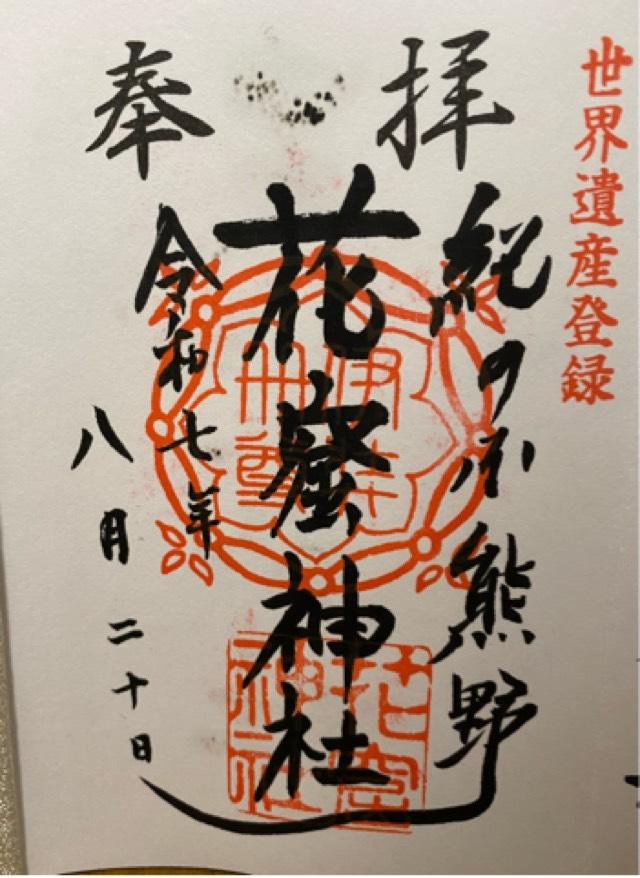 世界遺産登録
奉拝
紀の国熊野
花窟神社
令和七年
八月二十日
伊弉冊尊
花窟神社